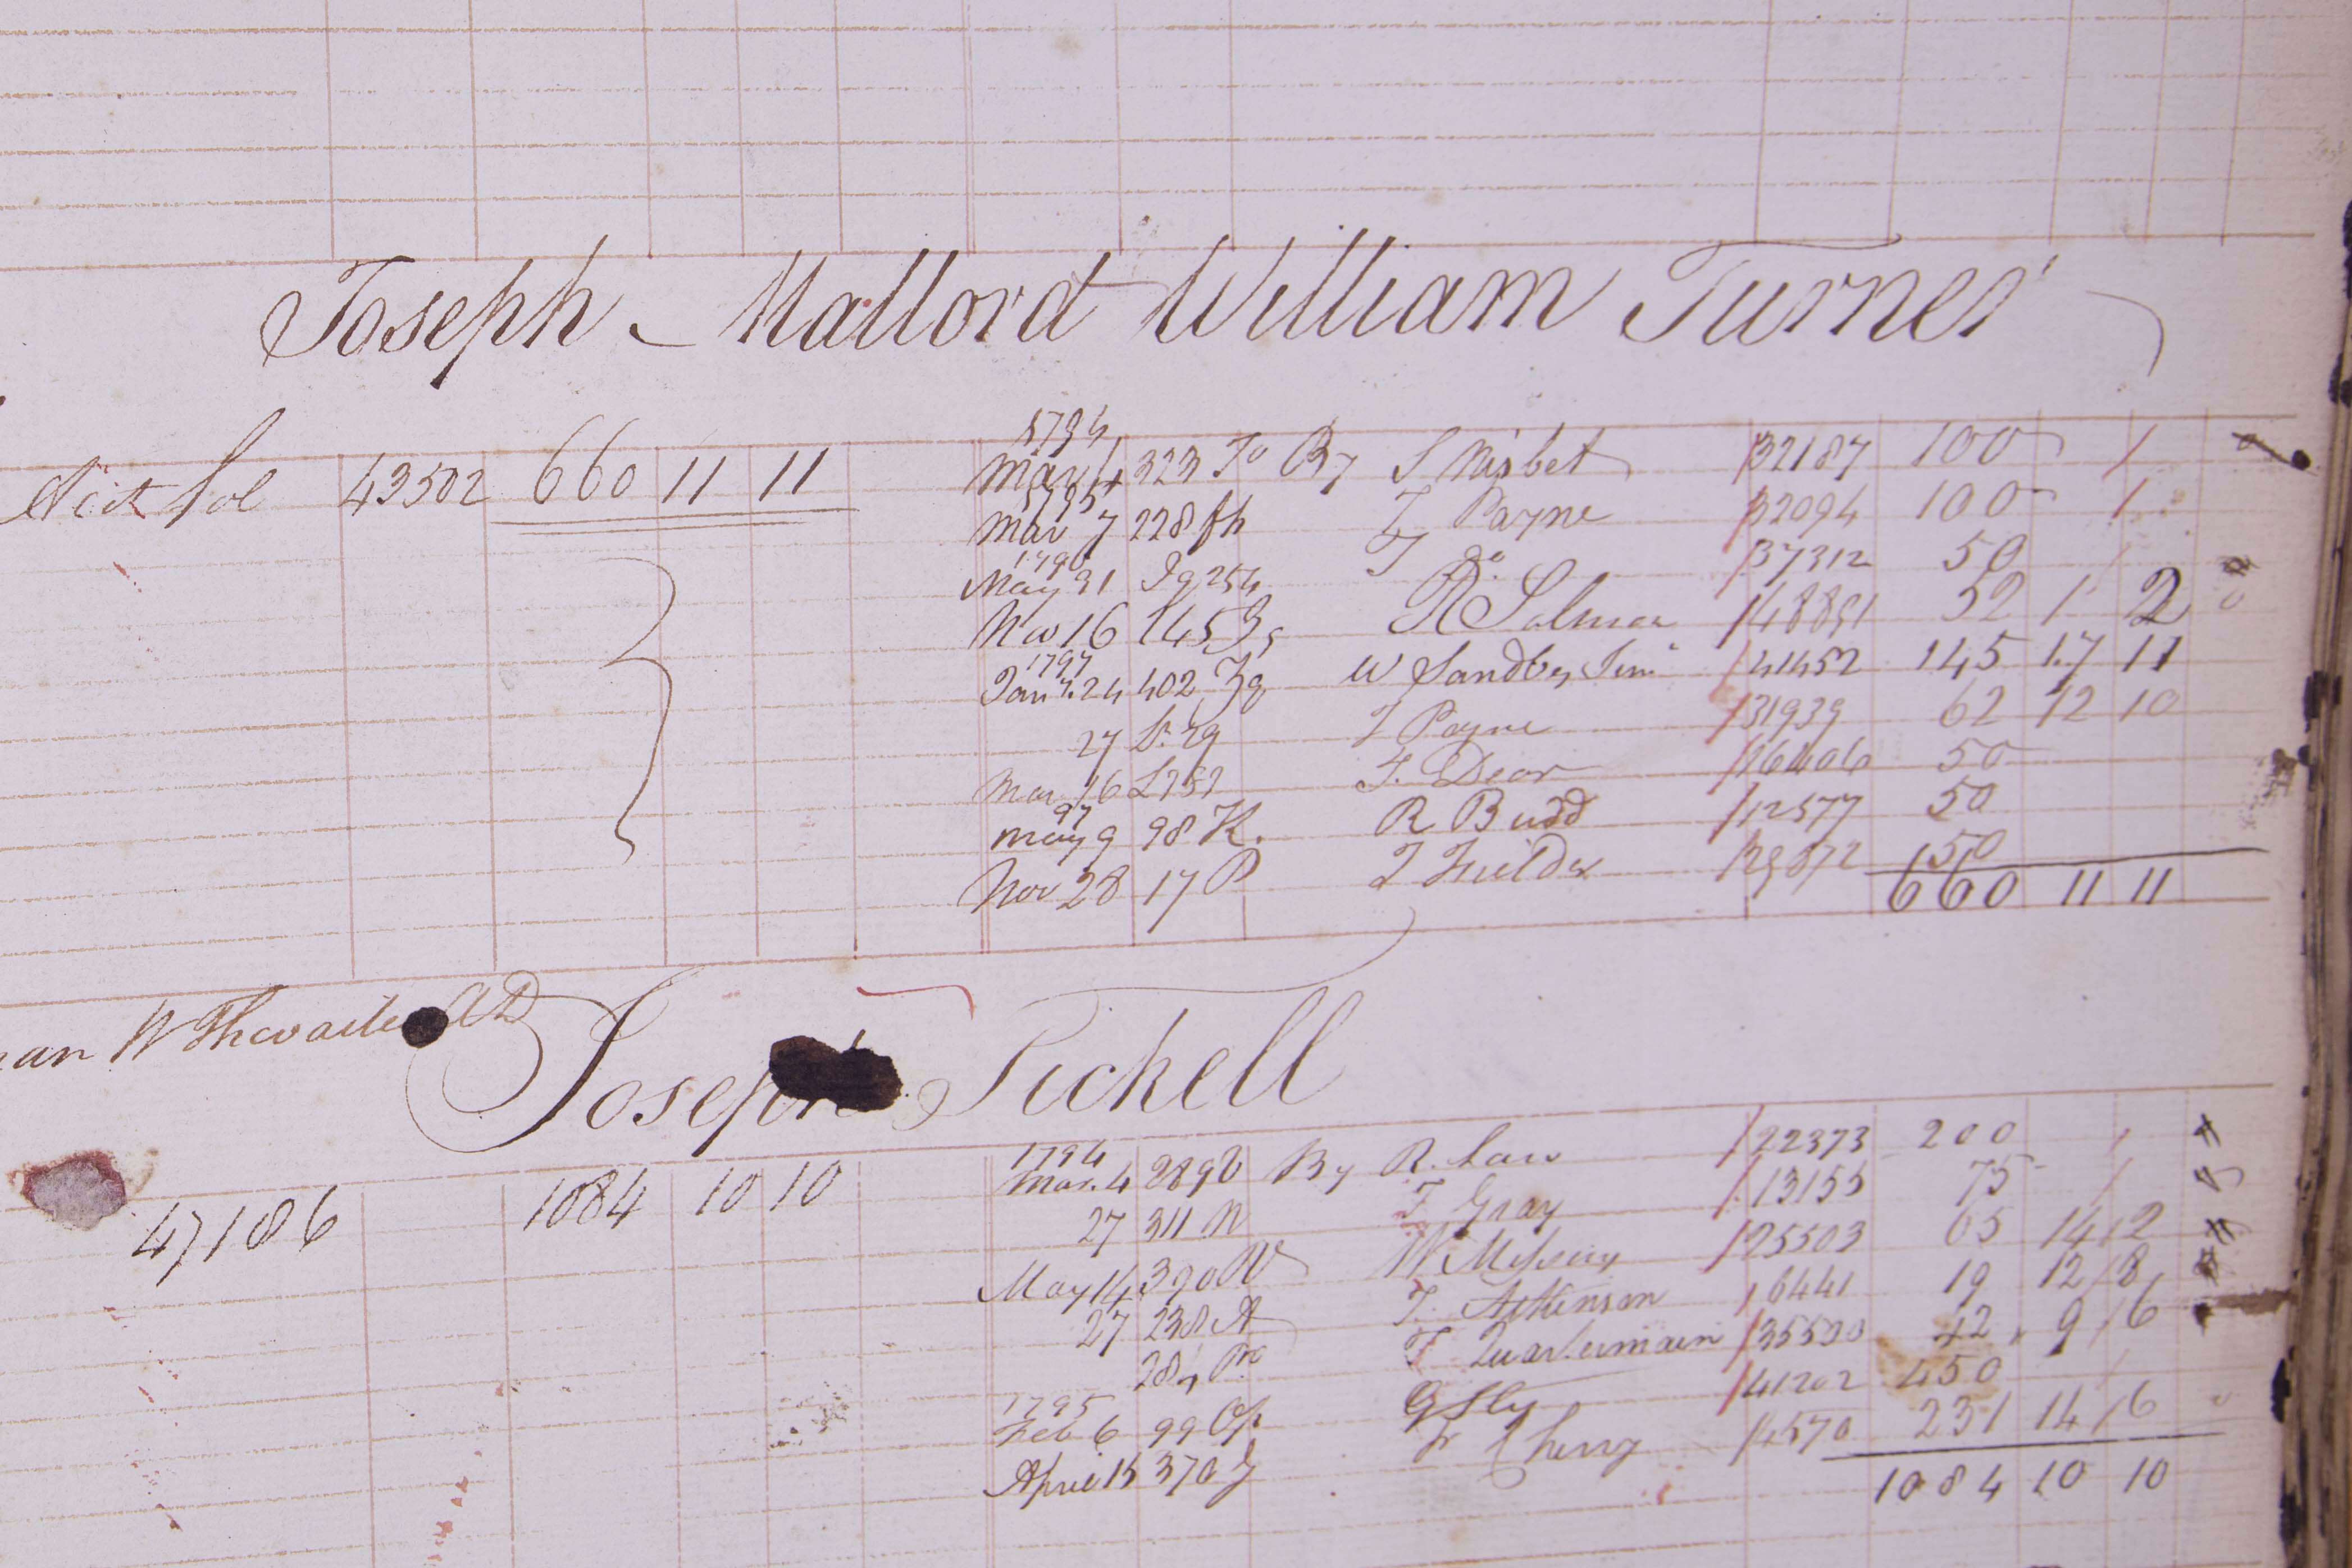 Joseph Mallord William Turner
43502 660 11 11
1794
323 To By S Nisbet 32187 100
1795
Mar 7 228 T Payne 32094 100
1796
May 31 254 T Do. 37312 50
Nov 16 145 R Salmon 52 1 2
1797
Jany. 24 402 W Sandby Junr 41452 145 17 11
27 T Payne 31939 62 12 10
Mar 16 T. Dear 50
97
May 9 98 K. R Budd 12577 50
Nov 28 17 P T Fielder 50
660 11 11
W Thwaites
Joseph Tickell
47186 1084 10 10
1794
Mar. 4 289 By R. Law 22373 200
27 311 N T Gray 13155 75
May 14 390 W W 25503 65 14 2
27 238 A T. Atkinson 6441 19 12 8
28 T Quartermain 35500 42 9 6
1795
Feb 6 99 G Sly 41202 450
April 15 370 Cherry 4570 231 14 6
1084 10 10